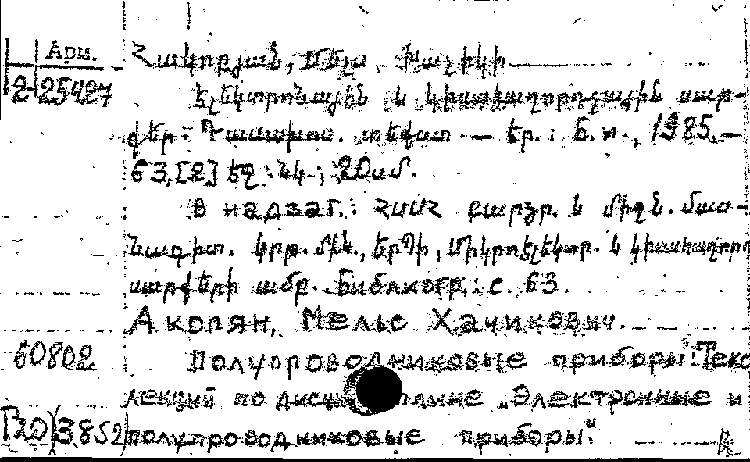 Арм.
2 25427
Հակոբյան, Մելս Խաչիկի
Էլեկտրոնային և կիսահաղորդչային սար-
քեր: Դասախոս. տեքստ — Եր.: Б. и., 1985.—
63,[2] էջ: նկ; 20սմ.
В надзаг.: ՀՍՍՀ բարձր. և միջն. մաս-
նագիտ. կրթ. մին., ԵրՊԻ, Միկրոէլեկտր. և կիսահաղորդ
սարքերի ամբ. Библиогр.: с. 63.
Акопян, Мельс Хачикович.
60802 Полупроводниковые приборы: Текс
лекций по дисциплине „Электронные и
Г20 3852 полупроводниковые приборы“